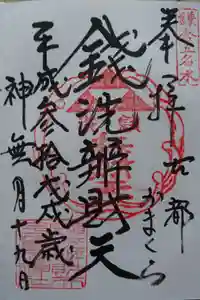 鎌倉五名水
奉拝 古都
かまくら
錢洗辨財天
平成参拾戊戌歳
神無月十九日